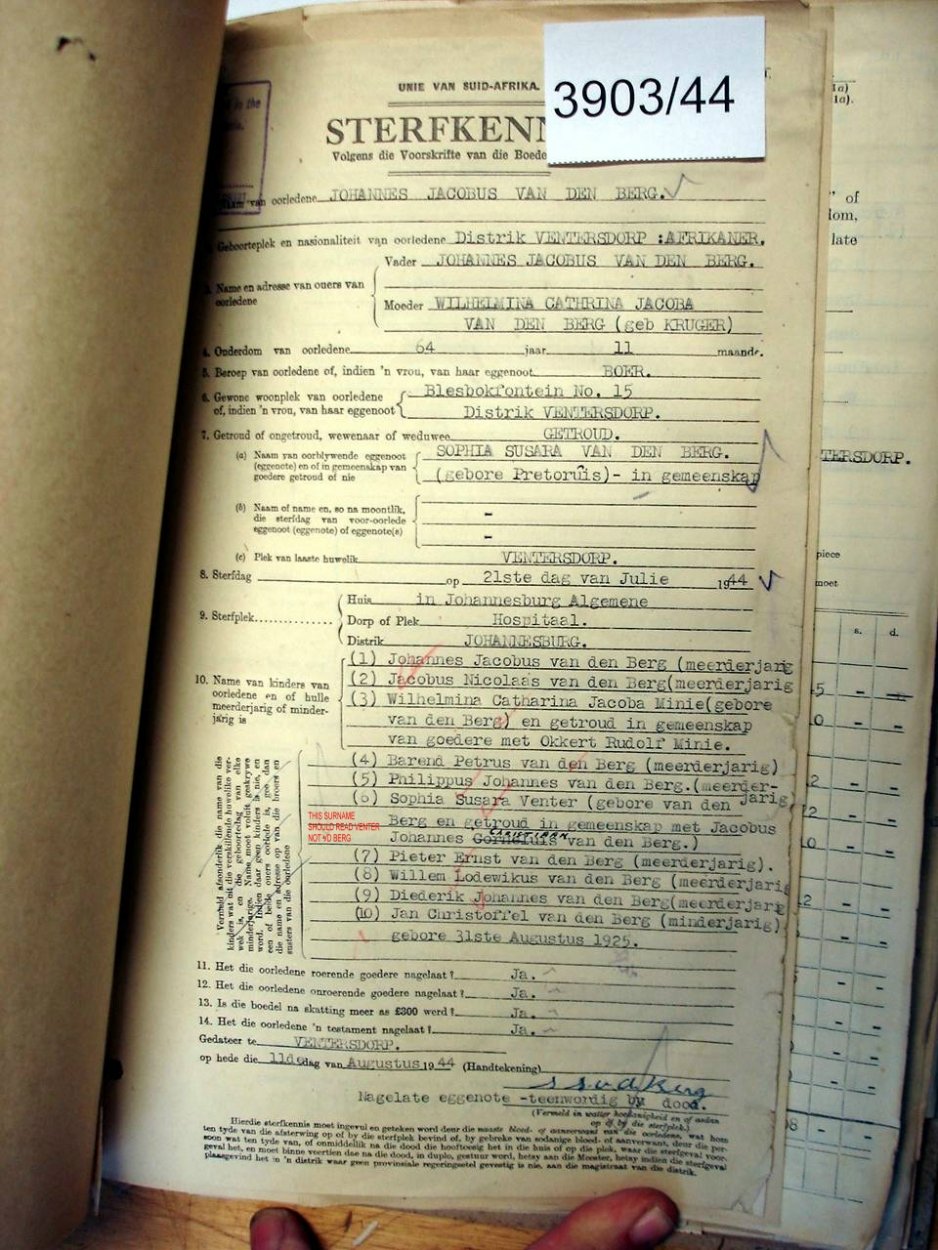 3903/44
UNIE VAN SUID-AFRIKA.
in the
STERFKENN
Volgens die Voorskrifte van die Boede
Naam van oorledene JOHANNES JACOBUS VAN DEN BERG.
Geboorteplek en nasionaliteit van oorledene Distrik VENTERSDORP :AFRIKANER.
3. Name en adresse van ouers van oorledene
Vader JOHANNES JACOBUS VAN DEN BERG.
Moeder WILHELMINA CATHRINA JACOBA
VAN DEN BERG (geb KRUGER)
4. Onderdom van oorledene 64 jaar 11 maande.
5. Beroep van oorledene of, indien 'n vrou, van haar eggenoot BOER.
6. Gewone woonplek van oorledene Blesbokfontein No. 15
of, indien 'n vrou, van haar eggenoot Distrik VENTERSDORP.
7. Getroud of ongetroud, wewenaar of weduwee GETROUD.
(a) Naam van oorblywende eggenoot SOPHIA SUSARA VAN DEN BERG.
(eggenote) en of in gemeenskap van
goedere getroud of nie (gebore Pretoruis)- in gemeenskap
(b) Naam of name en, so na moontlik, -
die sterfdag van voor-oorlede
eggenoot (eggenote) of eggenote(s) -
(c) Plek van laaste huwelik VENTERSDORP.
8. Sterfdag op 21ste dag van Julie 1944
9. Sterfplek
Huis in Johannesburg Algemene
Dorp of Plek Hospitaal.
Distrik JOHANNESBURG.
10. Name van kinders van
oorledene en of hulle
meerderjarig of minder-
jarig is
(1) Johannes Jacobus van den Berg (meerderjarig
(2) Jacobus Nicolaas van den Berg(meerderjarig
(3) Wilhelmina Catharina Jacoba Minie(gebore
van den Berg) en getroud in gemeenskap
van goedere met Okkert Rudolf Minie.
(4) Barend Petrus van den Berg (meerderjarig)
(5) Philippus Johannes van den Berg.(meerder-
jarig
(6) Sophia Susara Venter (gebore van den
Berg en getroud in gemeenskap met Jacobus
Johannes Cornelius CHRISTIAAN van den Berg.)
THIS SURNAME
SHOULD READ VENTER
NOT VD BERG
(7) Pieter Ernst van den Berg (meerderjarig).
(8) Willem Lodewikus van den Berg (meerderjarig
(9) Diederik Johannes van den Berg(meerderjarig
(10) Jan Christoffel van den Berg (minderjarig)
gebore 31ste Augustus 1925.
Vermeld afsonderlik die name van die
kinders wat uit die verskillende huwelike ver-
wek is, en die geboortedag van elke
minderjarige. Name moet voluit geskrywe
word. Indien daar geen kinders is nie, en
een of beide ouers oorlede is, gee dan
die name en adresse op van die broers en
susters van die oorledene
11. Het die oorledene roerende goedere nagelaat? Ja.
12. Het die oorledene onroerende goedere nagelaat? Ja.
13. Is die boedel na skatting meer as £300 werd? Ja.
14. Het die oorledene 'n testament nagelaat? Ja.
Gedateer te VENTERSDORP.
op hede die 11de dag van Augustus 1944 (Handtekening)
s s v d Berg
Nagelate eggenote -teenwordig by dood.
(Vermeld in watter hoedanigheid en of aldan
op of by die sterfplek.)
Hierdie sterfkennis moet ingevul en geteken word deur die naaste bloed- of aanverwant van die oorledene, wat hom
ten tyde van die afsterwing op of by die sterfplek bevind of, by gebreke van sodanige bloed- of aanverwant, deur die per-
soon wat ten tyde van, of onmiddellik na die dood die hooftoesig het in die huis of op die plek, waar die sterfgeval voor-
geval het, en moet binne veertien dae na die dood, in duplo, gestuur word, hetsy aan die Meester, hetsy indien die sterfgeval
plaasgevind het in 'n distrik waar geen provinsiale regeringsetel gevestig is nie, aan die magistraat van die distrik.
1a)
1a).
" of
dom,
late
TERSDORP.
piece
moet
s. d.